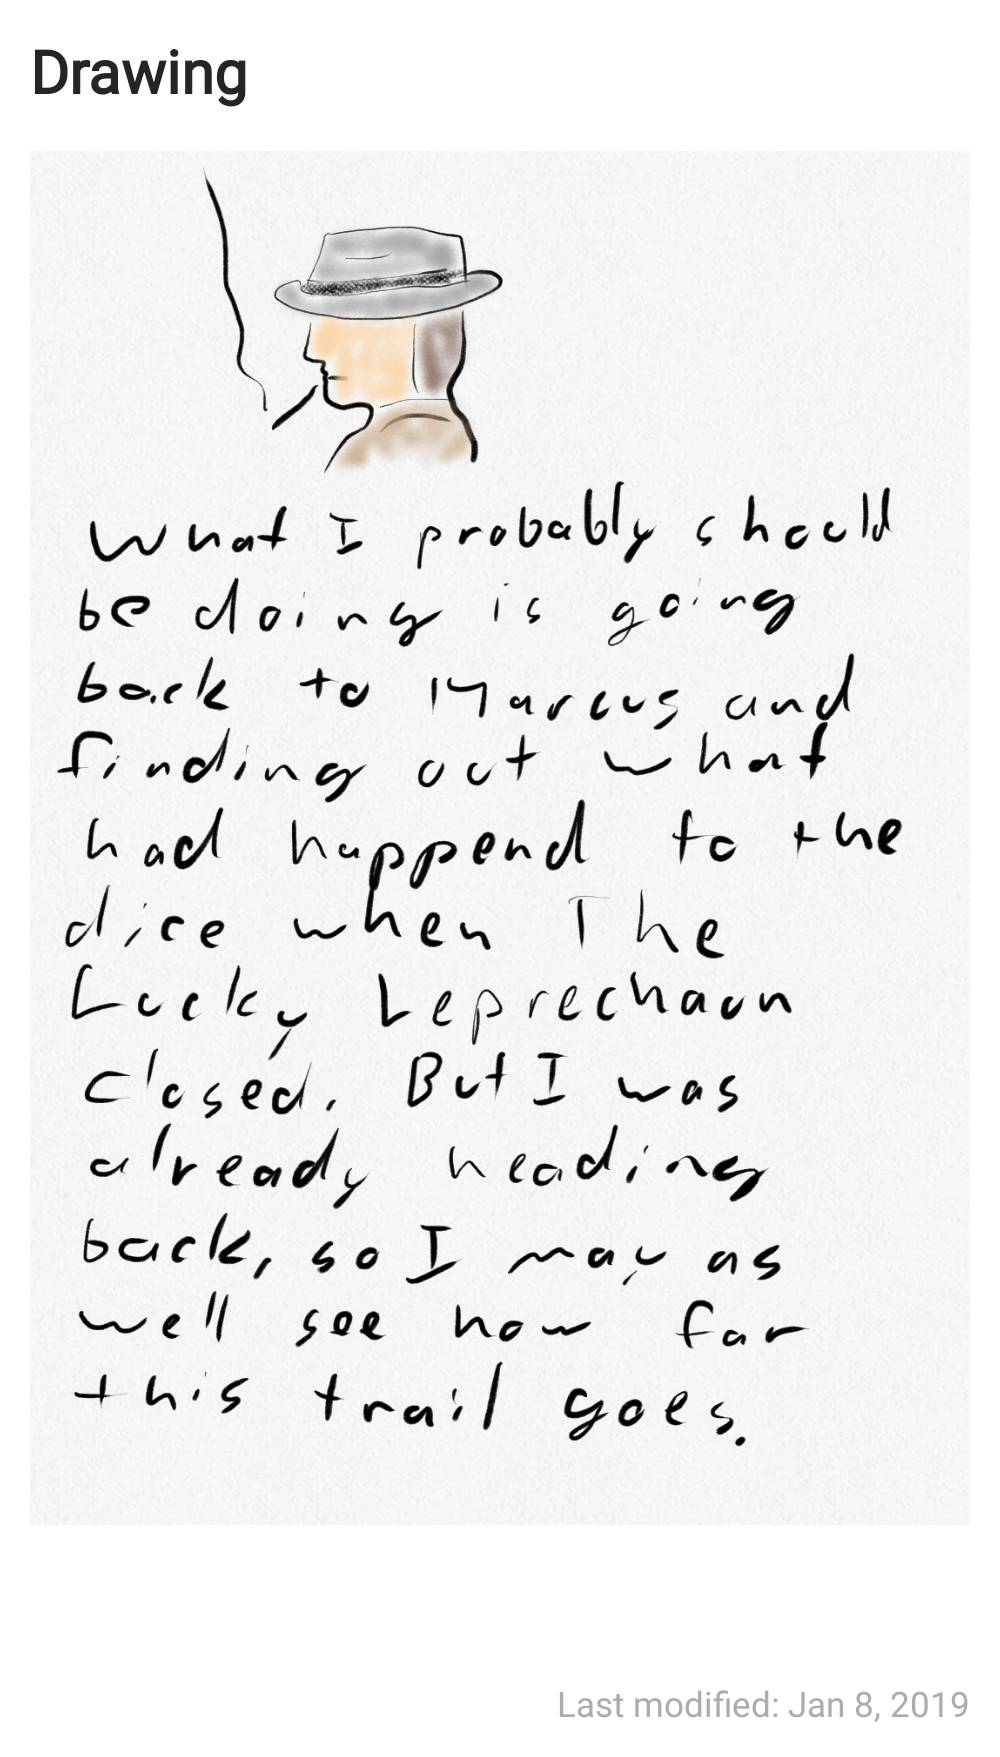 Drawing
What I probably should
be doing is going
back to Marcus and
finding out what
had happend to the
dice when The
Lucky Leprechaun
closed. But I was
already heading
back, so I may as
well see how far
this trail goes.
Last modified: Jan 8, 2019